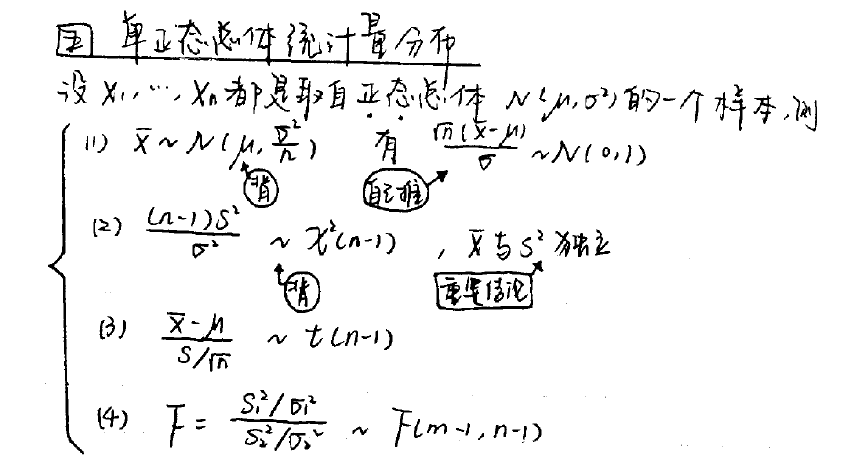 五 单正态总体统计量分布
设 X₁, ⋯, Xₙ 都是取自正态总体 N(μ, σ²) 的一个样本, 则
(1) X̄ ~ N(μ, σ²/n) 有 √n(X̄-μ)/σ ~ N(0,1)
背 自己推
(2) (n-1)S²/σ² ~ χ²(n-1) , X̄ 与 S² 独立
背 重要结论
(3) (X̄-μ)/(S/√n) ~ t(n-1)
(4) F = (S₁²/σ₁²)/(S₂²/σ₂²) ~ F(m-1, n-1)